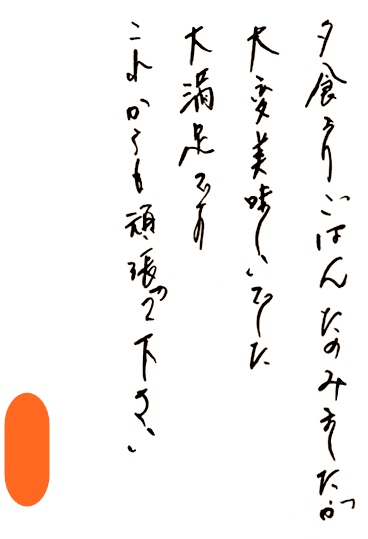 夕食よりごはんたのみましたが
大変美味しいでした
大満足です
これからも頑張って下さい